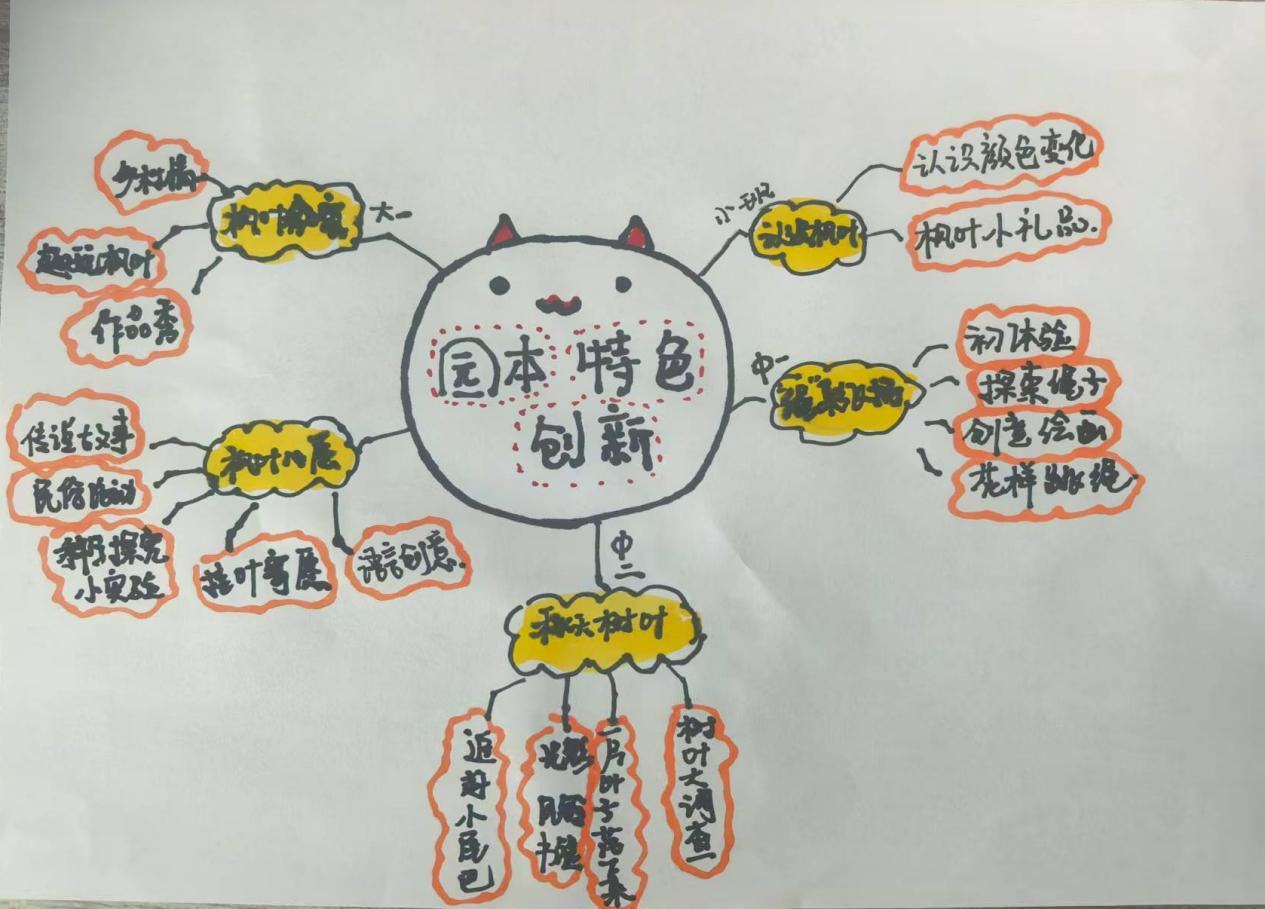 园本特色
创新
小班
认识枫叶
认识颜色变化
枫叶小礼品.
中一
初体验
探索绳子
创意绘画
花样跳绳.
中二
秋天树叶
树叶大调查
一片叶子落下来
追寻小尾巴
大一
枫叶
乡村
趣玩枫叶
作品秀
枫叶
传说故事
民俗活动
探究
小实验
语言创意.